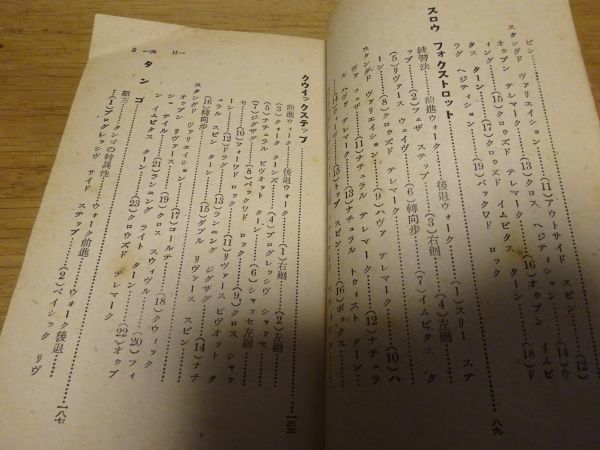 ピン
スタンダド ヴァリエイション (11)アウトサイド スピン (12)
オゥプン テレマーク (13)クロス ヘジティション (14)ウ
ィング (15)クロウズド テレマーク (16)オゥプン イムピ
タス ターン (17)クロウズド イムピタス ターン (18)ド
ラグ ヘジティション (19)バックワド ロック
スロウ フォクストロット 八九
練習法 前進ウォーク 後退ウォーク (1)スリー ステ
ップ (2)フェザ ステップ (3)右廻 (4)左廻
(5)リヴァース ウェイヴ (6)轉向步 (7)イムピタス タ
ーン (8)クロウズド テレマーク
スタンダド ヴァリエイション (9)ハヴァ テレマーク (10)ハ
ヴァ フェザ (11)ナチュラル テレマーク (12)ナチュラ
ル ハヴァ テレマーク (13)ナチュラル トゥイスト ターン
(15)トップ スピン (16)ボックス
クウイックステップ 一三五
前進ウォーク 後退ウォーク (1)右廻 (2)左廻
(3)クォータ ターンズ (4)プログレッシヴ シャッセ
(5)ナチュラル ピヴオット ターン (6)シャッセ左廻
(7)ジグザグ (8)バックワド ロック (9)クロス シャッ
セ (10)フォーワド ロック (11)リヴァース ピヴオット タ
ーン (12)ドラグ (13)ランニング ジグザグ (14)ナチ
ュラル スピン ターン (15)ダブル リヴァース スピン
(16)轉向步
スタンダド ヴァリエイション (17)コールテ (18)クウィック
オゥプン リヴァース (19)クロス スウィヴル (20)フィ
シュ テイル (21)ランニング ライト ターン (22)オゥプ
ン イムピタス ターン (23)クロウズド テレマーク
タンゴ 一八七
組方 タンゴの特異性 ウォーク前進 ウォーク後退
(1)プログレッシヴ サイド ステップ (2)ベイシック リヴ
目 次